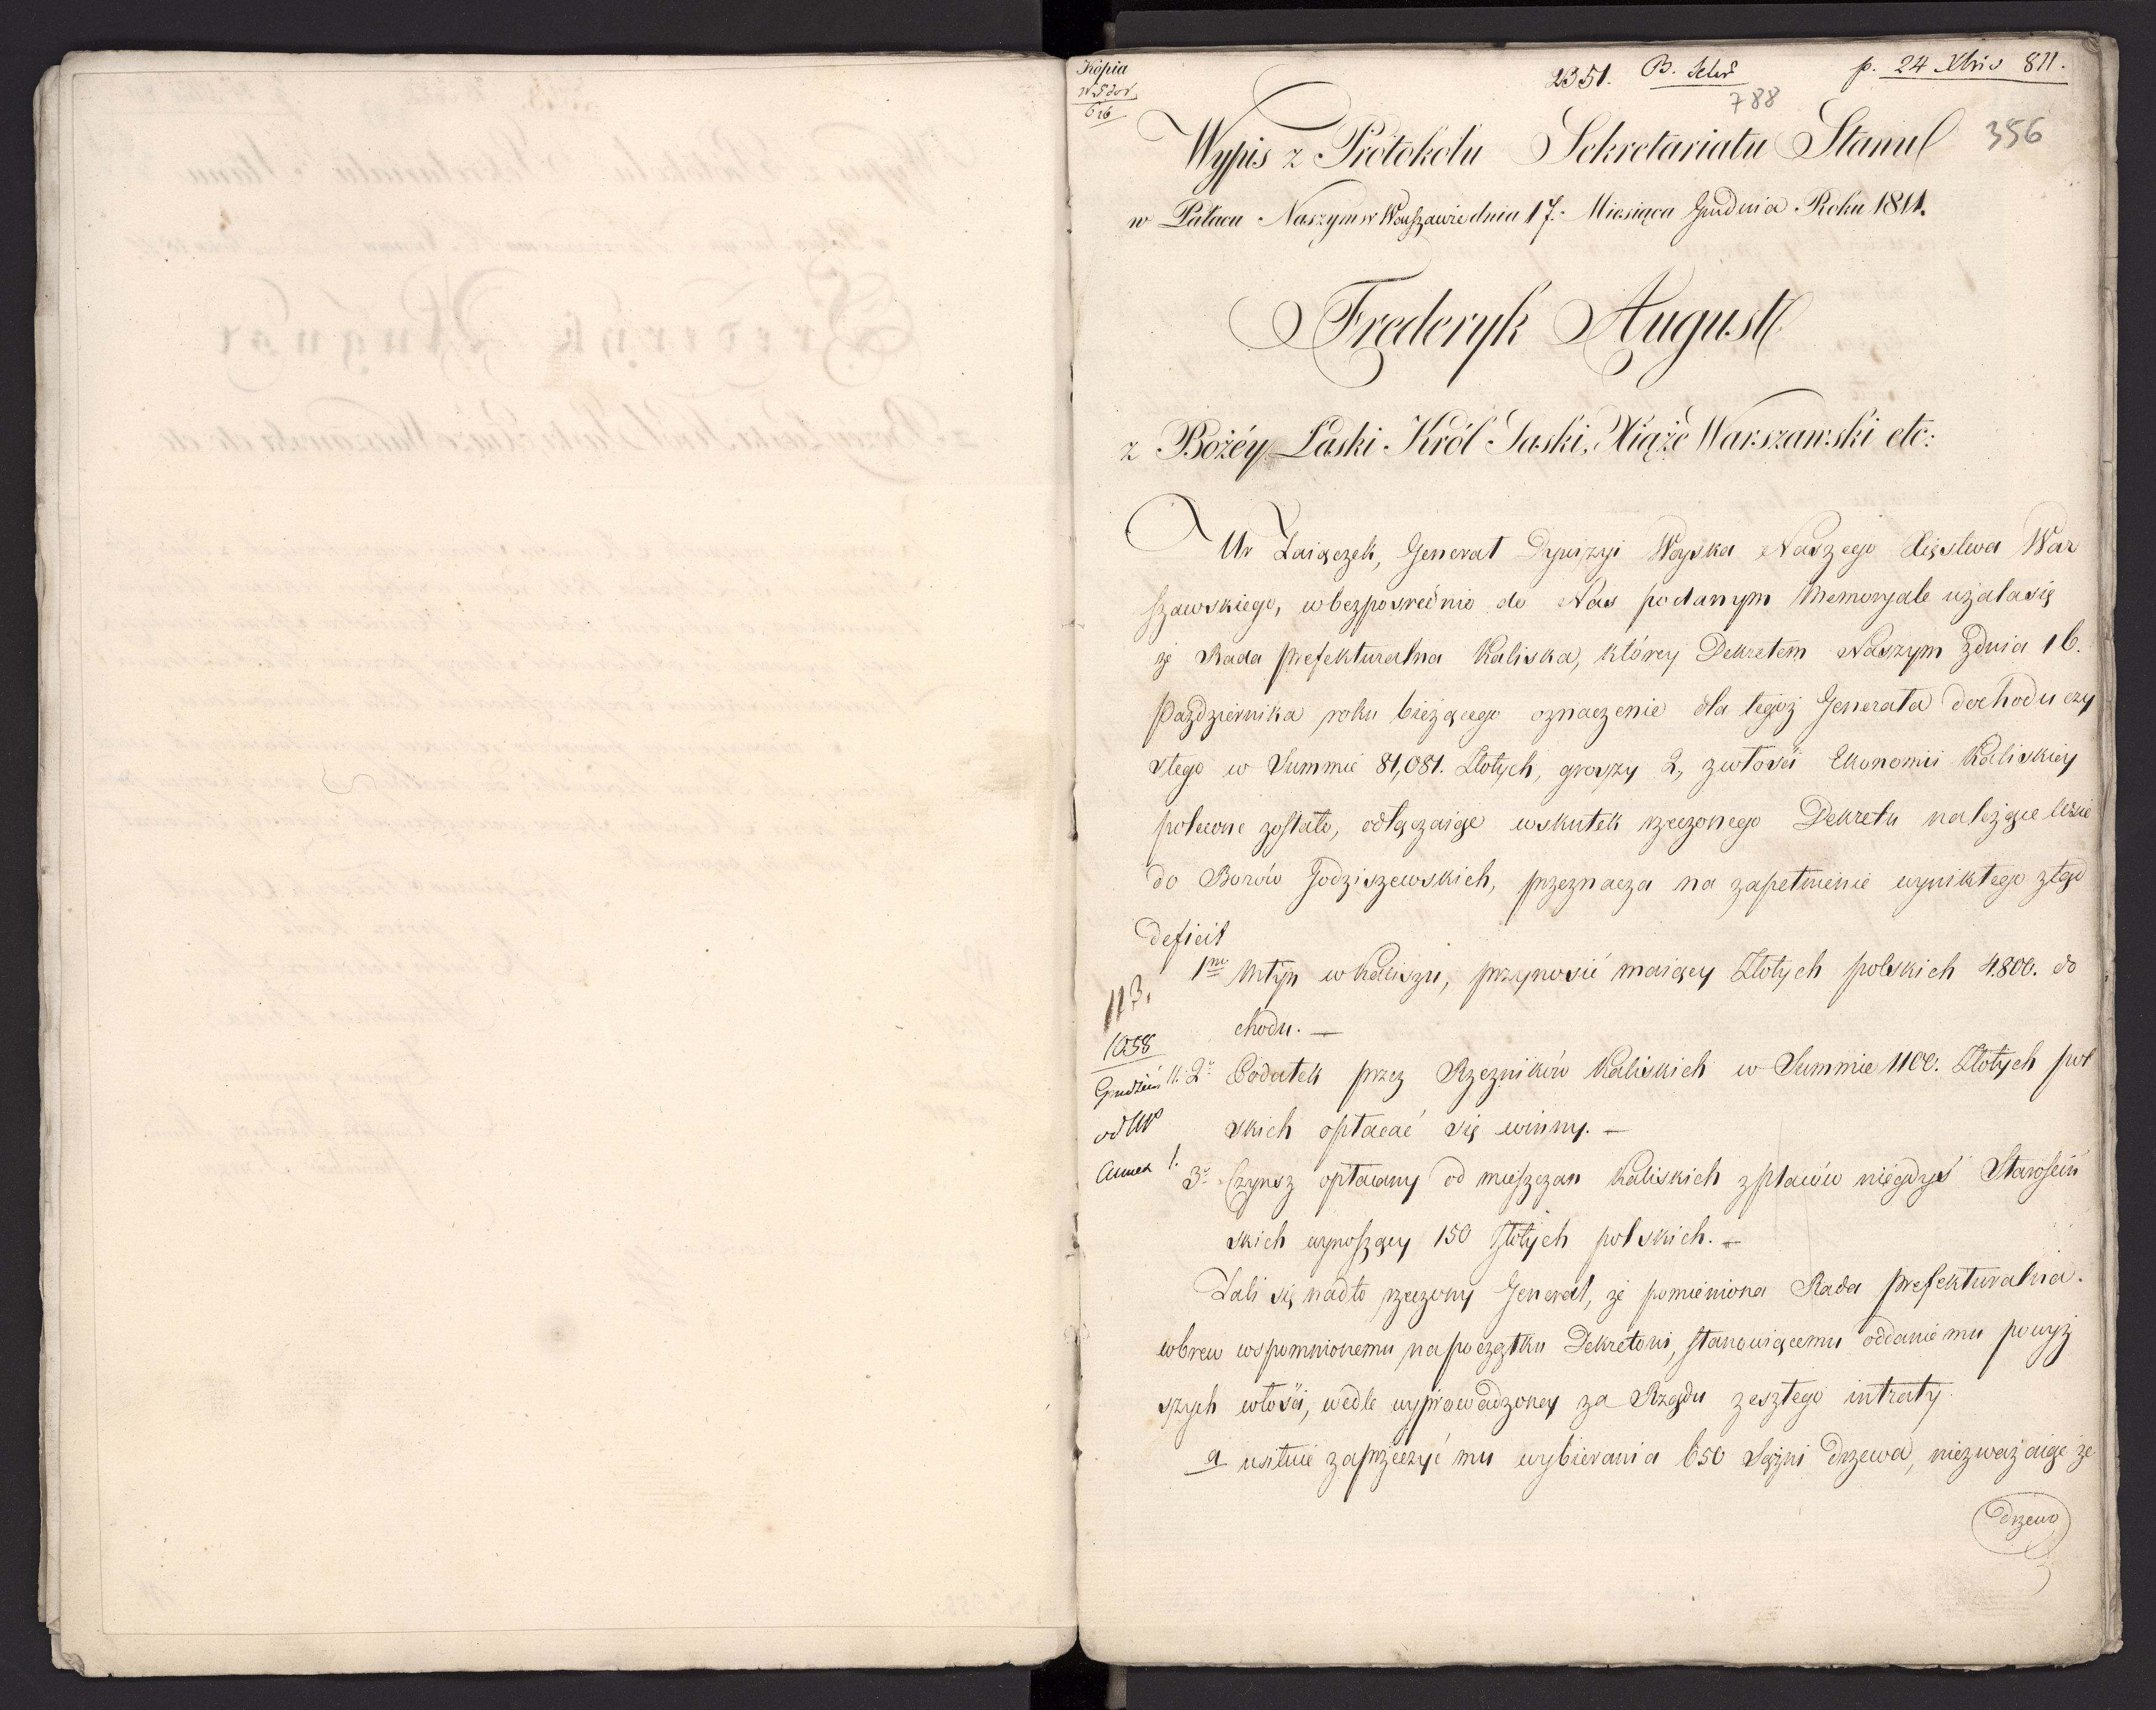 Kopia
2351.
p. 24 Xbris 811.
788
356
Wypis z Protokołu Sekretariatu Stanu
w Pałacu Naszym w Warszawie dnia 17. Miesiąca Grudnia Roku 1811.
Frederyk August
z Bożéy Łaski Król Saski, Xiąże Warszawski etc:
Ur Zaiączek, Generał Dywizyi Woyska Naszego Xięstwa War
szawskiego, w bezpośrednio do Nas podanym Memoryale użala się
że Rada prefekturalna Kaliska, którey Dekretem Naszym z dnia 16.
Października roku bieżącego oznaczenie dla tegoż Generała dochodu czy
stego w Summie 81,081. Złotych, groszy 2, z włości Ekonomii Kaliskiey
polecone zostało, odłączaiąc w skutek rzeczonego Dekretu należące
do Borów Godziszewskich, przeznacza na zapełnienie wynikłego ztąd
deficit
1mo Młyn w Kaliszu, przynosić maiący Złotych polskich 4.800. do
chodu. —
113.
1058
Grudzień 11.
2o Podatek przez Rzezników Kaliskich w Summie 1100. Złotych pol
skich opłacać się winny. —
Annex 1.
3o Czynsz opłacany od mieszczan Kaliskich z pławów niegdyś Starościń
skich wynoszący 150 Złotych polskich. —
Żali się nadto rzeczony Generał, że pomieniona Rada prefekturalna
wbrew wspomnionemu na początku Dekretowi, stanowiącemu oddanie mu powyż
szych włości, wedle wyprowadzoney za Rządu zeszłego intraty.
a usiłuie zaprzeczyć mu wybierania 650 Sążni drzewa, niezważaiąc że
drzewo